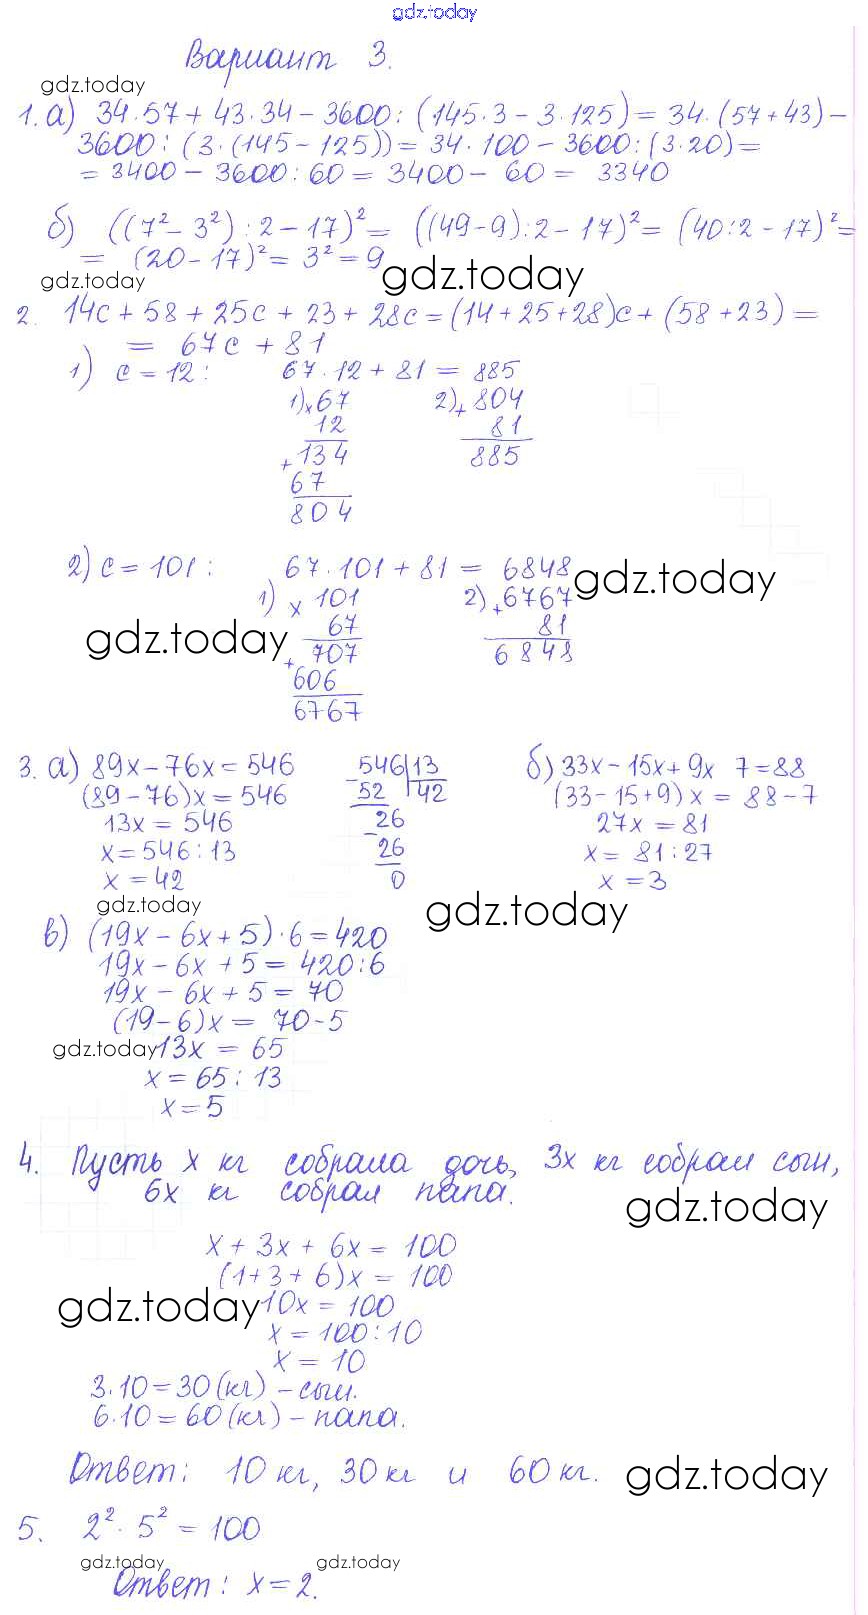 gdz.today
Вариант 3.
gdz.today
1. а) 34·57 + 43·34 - 3600 : (145·3 - 3·125) = 34·(57+43) -
3600 : (3·(145 - 125)) = 34·100 - 3600 : (3·20) =
= 3400 - 3600 : 60 = 3400 - 60 = 3340
б) ((7² - 3²) : 2 - 17)² = ((49-9) : 2 - 17)² = (40 : 2 - 17)² =
= (20 - 17)² = 3² = 9
gdz.today gdz.today
2. 14с + 58 + 25с + 23 + 28с = (14 + 25 + 28)с + (58 + 23) =
= 67с + 81
1) с = 12 : 67·12 + 81 = 885
1) × 67 2) + 804
12 81
+ 134 885
67
804
2) с = 101 : 67·101 + 81 = 6848
gdz.today
1) × 101 2) + 6767
67 81
gdz.today
+ 707 6848
606
6767
3. а) 89x - 76x = 546 - 546 | 13 б) 33x - 15x + 9x 7 = 88
(89 - 76)x = 546 52 | 42 (33 - 15 + 9)x = 88 - 7
13x = 546 - 26 27x = 81
x = 546 : 13 26 x = 81 : 27
x = 42 0 x = 3
gdz.today gdz.today
в) (19x - 6x + 5)·6 = 420
19x - 6x + 5 = 420 : 6
19x - 6x + 5 = 70
(19 - 6)x = 70 - 5
gdz.today 13x = 65
x = 65 : 13
x = 5
4. Пусть x кг собрала дочь, 3x кг собрал сын,
6x кг собрал папа.
gdz.today
x + 3x + 6x = 100
(1 + 3 + 6)x = 100
gdz.today 10x = 100
x = 100 : 10
x = 10
3·10 = 30 (кг) - сын.
6·10 = 60 (кг) - папа.
Ответ: 10 кг, 30 кг и 60 кг. gdz.today
5. 2² · 5² = 100
gdz.today gdz.today
Ответ: x = 2.